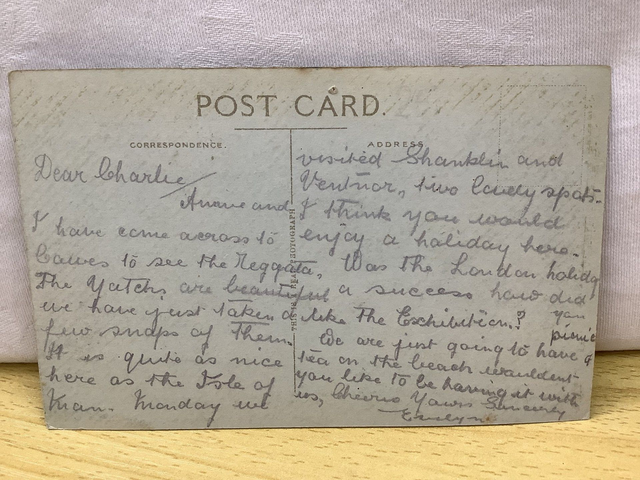 POST CARD.
CORRESPONDENCE.
ADDRESS.
Dear Charlie
and
I have come across to
Cowes to see the Reggata,
The Yatchs are beautiful
we have just taken a
few snaps of them.
It is quite as nice
here as the Isle of
Man. Monday we
visited Shanklin and
Ventnor, two lovely spots.
I think you would
enjoy a holiday here.
Was the London holiday
a success how did you
like the Exhibition?
We are just going to have a picnic
tea on the beach wouldent
you like to be having it with
us, Cheerio Yours Sincerely
Evelyn